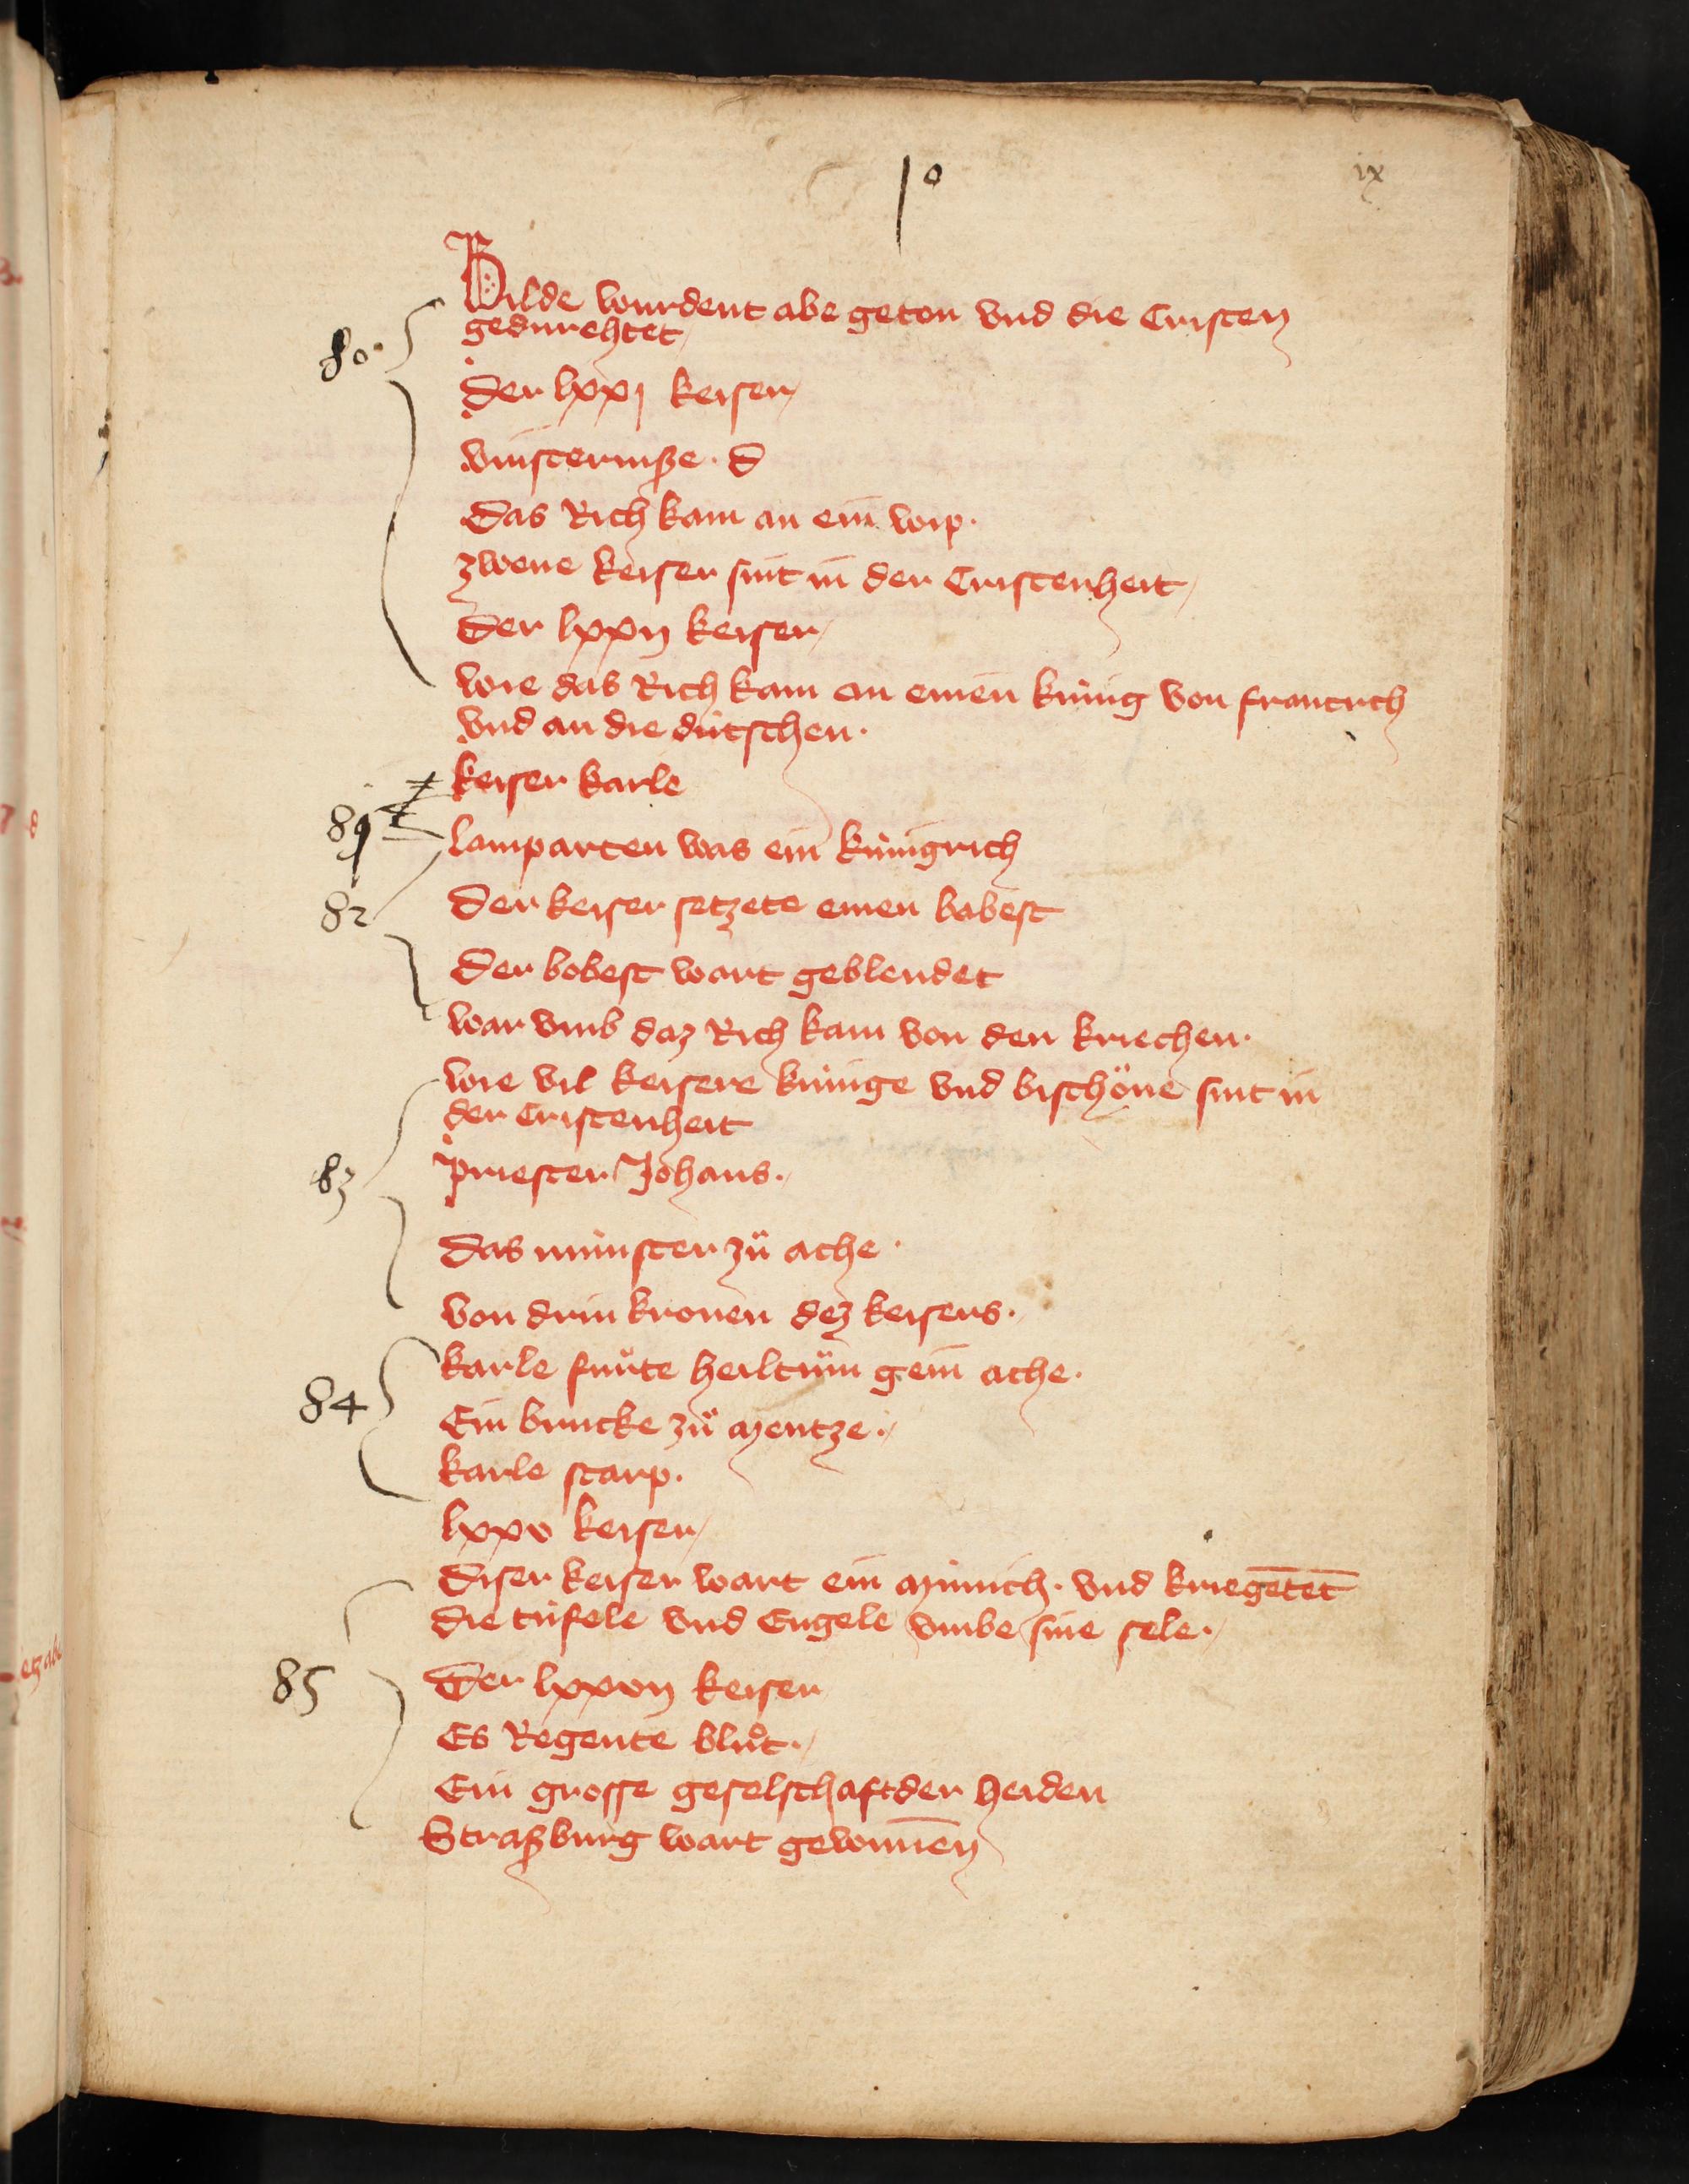 10
ix
Bilde wurdent abe geton vnd die Cristen
80. gedurehtet
der lxxj keiser
vinsterniße. d
Das Rich kam an ein wip.
zwene keiser sint in der Cristenheit
Der lxxij keiser
wie das Rich kam an einen kúnig von francrich
vnd an die dútschen.
keiser karle
81 lamparten was ein kúnigrich
82 Der keiser setzete einen babest
Der bobest wart geblendet
war vmb daz Rich kam von den kriechen.
wie vil keisere kúnige vnd bischöue sint in
der Cristenheit
83 priester Johans.
Das múnster zů ache.
von drin kronen dez keisers.
karle fůrte heiltům gein ache.
84 Ein brucke zů mentze.
karle starp.
lxxv keiser
Diser keiser wart ein múnich. vnd kriegetēt
die túfele vnd Engele vmbe sine sele.
85 Der lxxvij keiser
Es Regente blůt.
Ein grosse geselschaft der heiden
Straßburg wart gewunnen